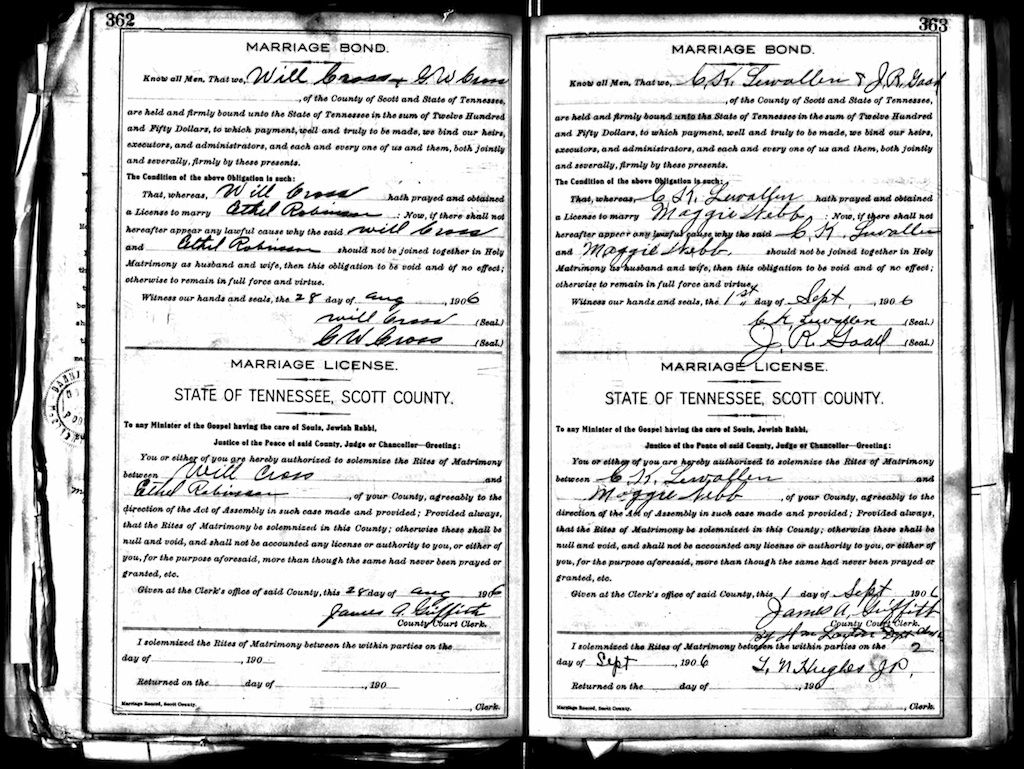 362
MARRIAGE BOND.
Know all Men, That we, Will Cross & G W Cross
, of the County of Scott and State of Tennessee,
are held and firmly bound unto the State of Tennessee in the sum of Twelve Hundred
and Fifty Dollars, to which payment, well and truly to be made, we bind our heirs,
executors, and administrators, and each and every one of us and them, both jointly
and severally, firmly by these presents.
The Condition of the above Obligation is such:
That, whereas, Will Cross hath prayed and obtained
a License to marry Ethel Robinson : Now, if there shall not
hereafter appear any lawful cause why the said Will Cross
and Ethel Robinson should not be joined together in Holy
Matrimony as husband and wife, then this obligation to be void and of no effect;
otherwise to remain in full force and virtue.
Witness our hands and seals, the 28 day of Aug , 1906
Will Cross (Seal.)
G W Cross (Seal.)
MARRIAGE LICENSE.
STATE OF TENNESSEE, SCOTT COUNTY.
To any Minister of the Gospel having the care of Souls, Jewish Rabbi,
Justice of the Peace of said County, Judge or Chancellor—Greeting:
You or either of you are hereby authorized to solemnize the Rites of Matrimony
between Will Cross and
Ethel Robinson , of your County, agreeably to the
direction of the Act of Assembly in such case made and provided; Provided always,
that the Rites of Matrimony be solemnized in this County; otherwise these shall be
null and void, and shall not be accounted any license or authority to you, or either of
you, for the purpose aforesaid, more than though the same had never been prayed or
granted, etc.
Given at the Clerk's office of said County, this 28 day of Aug 1906
James A. Griffith
County Court Clerk.
I solemnized the Rites of Matrimony between the within parties on the
day of , 190
Returned on the day of , 190
, Clerk.
Marriage Record, Scott County.
363
MARRIAGE BOND.
Know all Men, That we, C. K. Lewallen & J. R. Goad
, of the County of Scott and State of Tennessee,
are held and firmly bound unto the State of Tennessee in the sum of Twelve Hundred
and Fifty Dollars, to which payment, well and truly to be made, we bind our heirs,
executors, and administrators, and each and every one of us and them, both jointly
and severally, firmly by these presents.
The Condition of the above Obligation is such:
That, whereas, C. K. Lewallen hath prayed and obtained
a License to marry Maggie Webb : Now, if there shall not
hereafter appear any lawful cause why the said C. K. Lewallen
and Maggie Webb. should not be joined together in Holy
Matrimony as husband and wife, then this obligation to be void and of no effect;
otherwise to remain in full force and virtue.
Witness our hands and seals, the 1st day of Sept , 1906
C. K. Lewallen (Seal.)
J. R. Goad (Seal.)
MARRIAGE LICENSE.
STATE OF TENNESSEE, SCOTT COUNTY.
To any Minister of the Gospel having the care of Souls, Jewish Rabbi,
Justice of the Peace of said County, Judge or Chancellor—Greeting:
You or either of you are hereby authorized to solemnize the Rites of Matrimony
between C. K. Lewallen and
Maggie Webb , of your County, agreeably to the
direction of the Act of Assembly in such case made and provided; Provided always,
that the Rites of Matrimony be solemnized in this County; otherwise these shall be
null and void, and shall not be accounted any license or authority to you, or either of
you, for the purpose aforesaid, more than though the same had never been prayed or
granted, etc.
Given at the Clerk's office of said County, this 1 day of Sept 1906
James A. Griffith
County Court Clerk.
By
I solemnized the Rites of Matrimony between the within parties on the 2
day of Sept , 1906 T. N. Hughes J.P.
Returned on the day of , 190
, Clerk.
Marriage Record, Scott County.